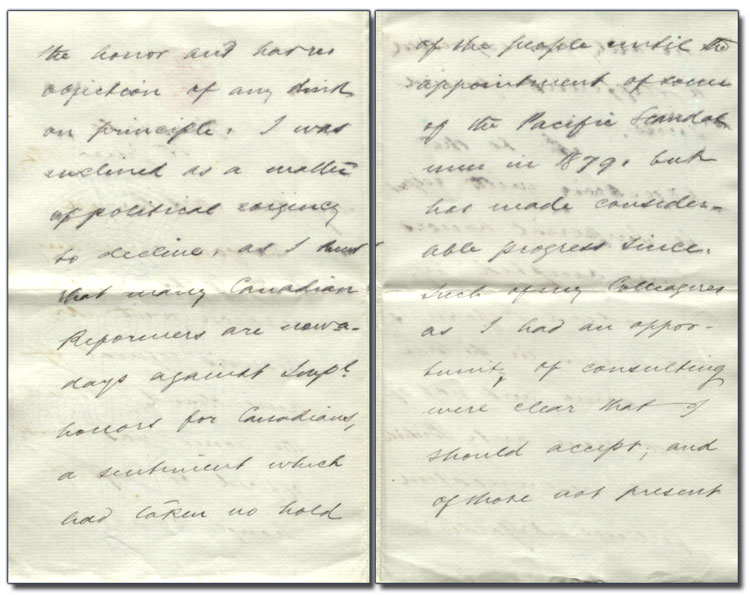 the honor and had no
objection of any kind
on principle. I was
inclined as a matter
of political exigency
to decline, as I think
that many Canadian
Reformers are nowa-
days against Impl.
honors for Canadians,
a sentiment which
had taken no hold
of the people until the
appointment of some
of the Pacific Scandal
men in 1879. but
has made consider-
able progress since.
Such of my Colleagues
as I had an oppor-
tunity of consulting
were clear that I
should accept; and
of those not present